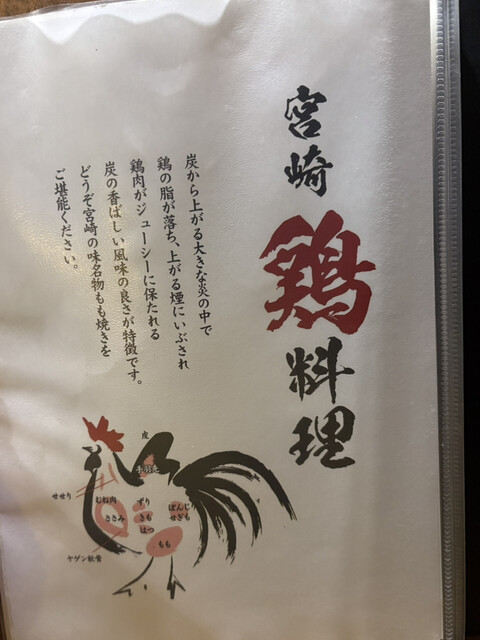 宮崎
鶏
料理
炭から上がる大きな炎の中で
鶏の脂が落ち、上がる煙にいぶされ
鶏肉がジューシーに保たれる
炭の香ばしい風味の良さが特徴です。
どうぞ宮崎の味名物もも焼きを
ご堪能ください。
皮
手羽先
せせり
むね肉
ささみ
ずり
きも
はつ
ぼんじり
せぎも
もも
ヤゲン軟骨